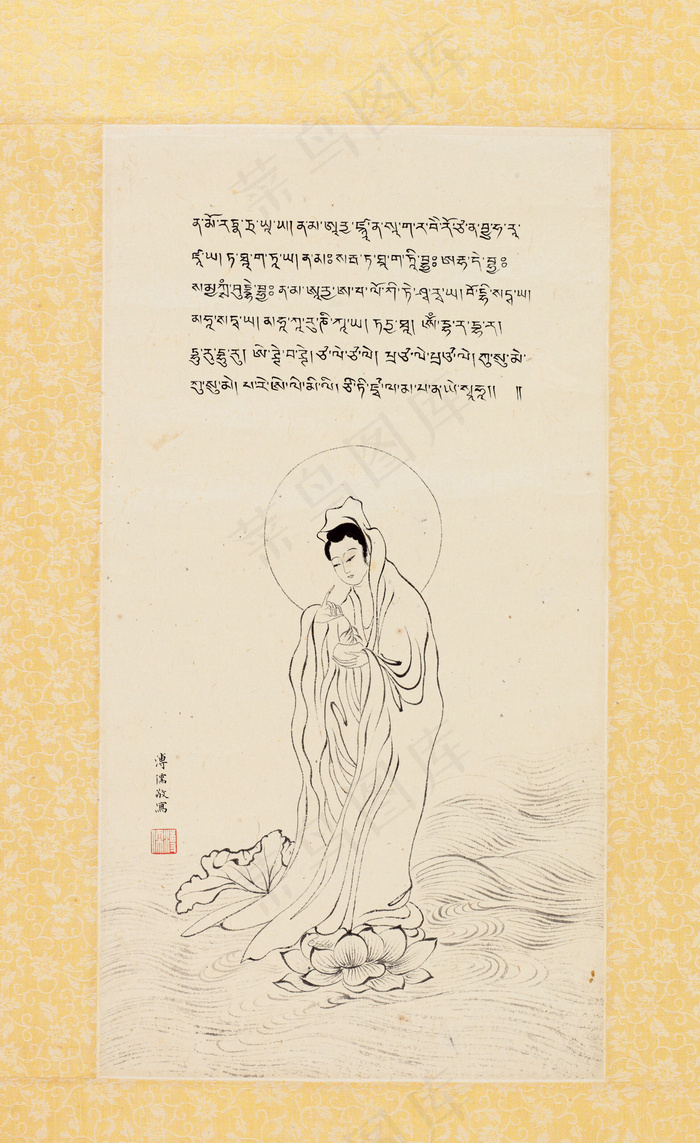 ན་མོ་རཏྣ་ཏྲ་ཡཱ་ཡ། ན་མ་ཨཱརྱ་ཛྙཱ་ན་སཱ་ག་ར་བཻ་རོ་ཙ་ན་བྱུ་ཧ་རཱ་
ཛཱ་ཡ། ཏ་ཐཱ་ག་ཏཱ་ཡ། ན་མཿ སརྦ་ཏ་ཐཱ་ག་ཏཱི་བྷྱཿ ཨརྷ་ཏེ་བྷྱཿ
སམྱཀྶཾ་བུདྡྷེ་བྷྱཿ ན་མ་ཨཱརྱ་ཨ་བ་ལོ་ཀི་ཏེ་ཤྭ་རཱ་ཡ། བོ་དྷི་སཏྭ་ཡ།
མ་ཧཱ་སཏྭ་ཡ། མ་ཧཱ་ཀཱ་རུ་ཎི་ཀཱ་ཡ། ཏདྱ་ཐཱ། ཨོཾ་དྷ་ར་དྷ་ར།
དྷུ་རུ་དྷུ་རུ། ཨི་ཊྚེ་བ་ཊྚེ། ཙ་ལེ་ཙ་ལེ། པྲ་ཙ་ལེ་པྲ་ཙ་ལེ། ཀུ་སུ་མེ་
ཀུ་སུ་མེ། བ་རེ་ཨི་ལི་མི་ལི། ཙི་ཏི་ཛྭ་ལ་མ་པ་ན་ཡེ་སྭཱ་ཧཱ།། །།
溥儒敬寫
菜鸟图库